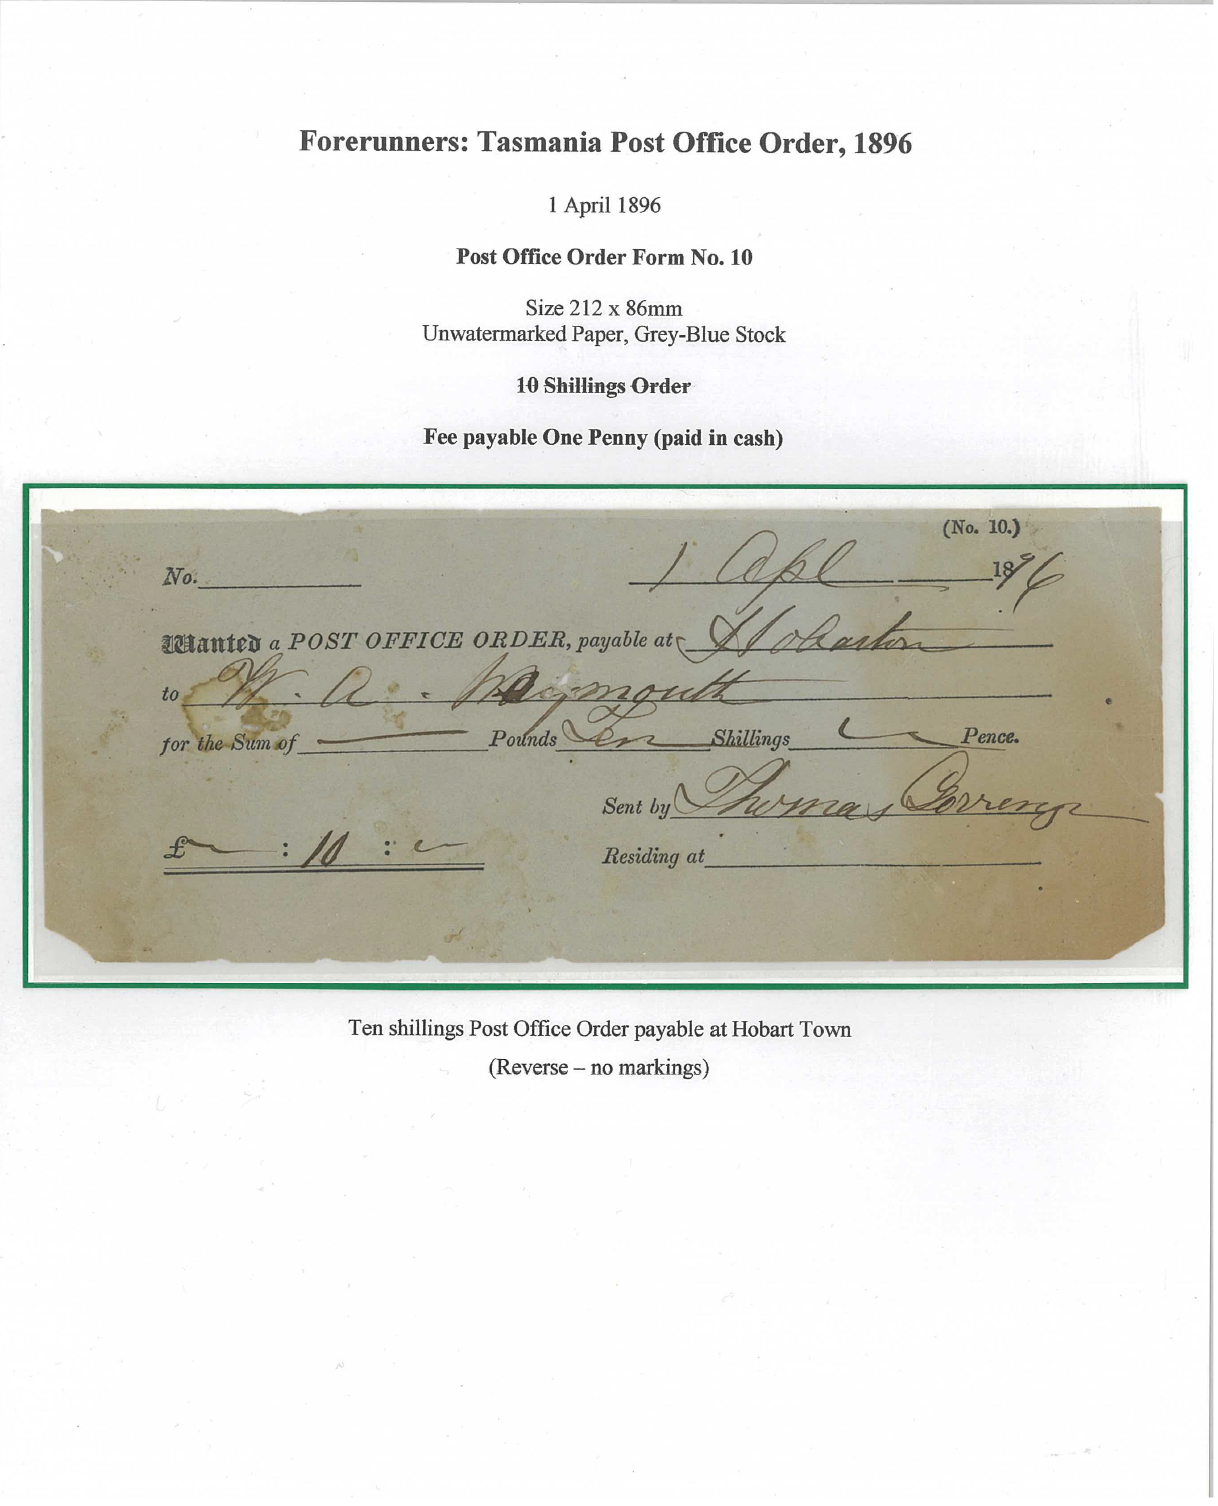 Forerunners: Tasmania Post Office Order, 1896
1 April 1896
Post Office Order Form No. 10
Size 212 x 86mm
Unwatermarked Paper, Grey-Blue Stock
10 Shillings Order
Fee payable One Penny (paid in cash)
(No. 10.)
No. 1 Apl 1896
Wanted a POST OFFICE ORDER, payable at Hobarton
to W. A. Weymouth
for the Sum of — Pounds Ten Shillings — Pence.
Sent by Thomas
£ — : 10 : —
Residing at
Ten shillings Post Office Order payable at Hobart Town
(Reverse – no markings)